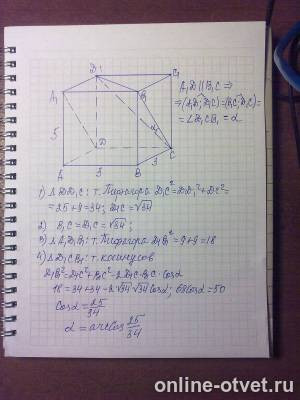 D₁
C₁
A₁
B₁
5
D
C
A
3
B
3
α
A₁D ∥ B₁C ⇒
⇒ (A₁D; D₁C) = (B₁C; D₁C) =
= ∠D₁CB₁ = α
1) △ DD₁C: т. Пифагора D₁C² = DD₁² + DC² =
= 25 + 9 = 34; D₁C = √34
2) B₁C = D₁C = √34;
3) △ A₁D₁B₁: т. Пифагора D₁B₁² = 9 + 9 = 18
4) △ D₁CB₁: т. косинусов
D₁B₁² = D₁C² + B₁C² - 2 D₁C · B₁C · cosα
18 = 34 + 34 - 2√34 √34 cosα; 68 cosα = 50
cosα = 25/34
α = arccos 25/34
online-otvet.ru